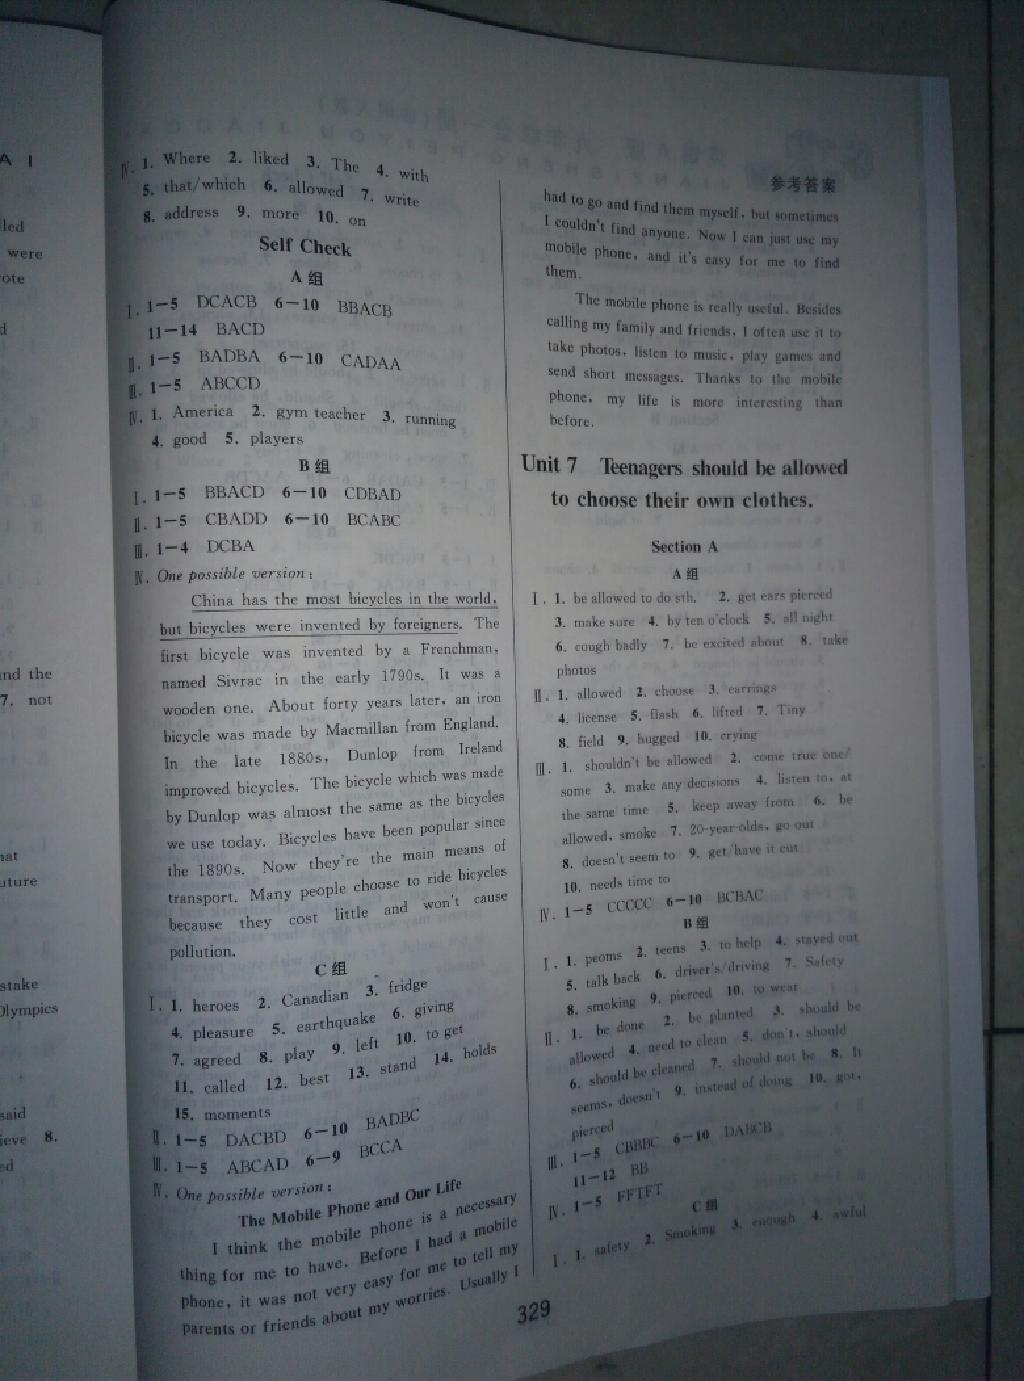 A I
lled
were
ote
d
nd the
7. not
uture
stake
Olympics
said
ieve 8.
ed
参考答案
Ⅳ. 1. Where 2. liked 3. The 4. with
5. that/which 6. allowed 7. write
8. address 9. more 10. on
Self Check
A 组
Ⅰ. 1-5 DCACB 6-10 BBACB
11-14 BACD
Ⅱ. 1-5 BADBA 6-10 CADAA
Ⅲ. 1-5 ABCCD
Ⅳ. 1. America 2. gym teacher 3. running
4. good 5. players
B 组
Ⅰ. 1-5 BBACD 6-10 CDBAD
Ⅱ. 1-5 CBADD 6-10 BCABC
Ⅲ. 1-4 DCBA
Ⅳ. One possible version:
China has the most bicycles in the world,
but bicycles were invented by foreigners. The
first bicycle was invented by a Frenchman,
named Sivrac in the early 1790s. It was a
wooden one. About forty years later, an iron
bicycle was made by Macmillan from England.
In the late 1880s, Dunlop from Ireland
improved bicycles. The bicycle which was made
by Dunlop was almost the same as the bicycles
we use today. Bicycles have been popular since
the 1890s. Now they're the main means of
transport. Many people choose to ride bicycles
because they cost little and won't cause
pollution.
C 组
Ⅰ. 1. heroes 2. Canadian 3. fridge
4. pleasure 5. earthquake 6. giving
7. agreed 8. play 9. left 10. to get
11. called 12. best 13. stand 14. holds
15. moments
Ⅱ. 1-5 DACBD 6-10 BADBC
Ⅲ. 1-5 ABCAD 6-9 BCCA
Ⅳ. One possible version:
The Mobile Phone and Our Life
I think the mobile phone is a necessary
thing for me to have. Before I had a mobile
phone, it was not very easy for me to tell my
parents or friends about my worries. Usually I
had to go and find them myself, but sometimes
I couldn't find anyone. Now I can just use my
mobile phone, and it's easy for me to find
them.
The mobile phone is really useful. Besides
calling my family and friends, I often use it to
take photos, listen to music, play games and
send short messages. Thanks to the mobile
phone, my life is more interesting than
before.
Unit 7 Teenagers should be allowed
to choose their own clothes.
Section A
A 组
Ⅰ. 1. be allowed to do sth. 2. get ears pierced
3. make sure 4. by ten o'clock 5. all night
6. cough badly 7. be excited about 8. take
photos
Ⅱ. 1. allowed 2. choose 3. earrings
4. license 5. flash 6. lifted 7. Tiny
8. field 9. hugged 10. crying
Ⅲ. 1. shouldn't be allowed 2. come true one/
some 3. make any decisions 4. listen to, at
the same time 5. keep away from 6. be
allowed, smoke 7. 20-year-olds, go out
8. doesn't seem to 9. get/have it cut
10. needs time to
Ⅳ. 1-5 CCCCC 6-10 BCBAC
B 组
Ⅰ. 1. peoms 2. teens 3. to help 4. stayed out
5. talk back 6. driver's/driving 7. Safety
8. smoking 9. pierced 10. to wear
Ⅱ. 1. be done 2. be planted 3. should be
allowed 4. need to clean 5. don't, should
6. should be cleaned 7. should not be 8. It
seems, doesn't 9. instead of doing 10. got,
pierced
Ⅲ. 1-5 CBBBC 6-10 DABCB
11-12 BB
Ⅳ. 1-5 FFTFT
C 组
Ⅰ. 1. safety 2. Smoking 3. enough 4. awful
329